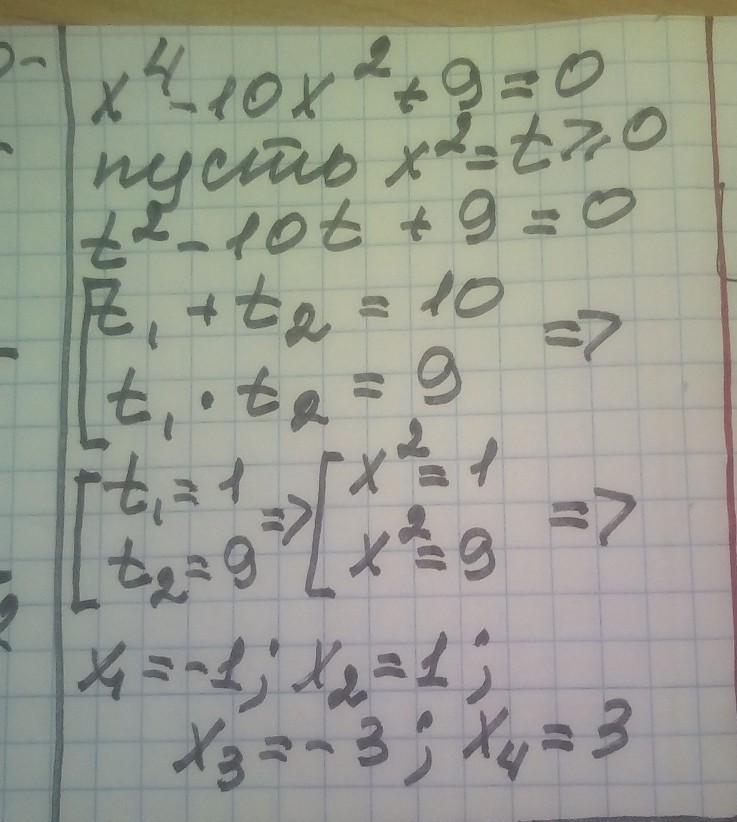 x⁴-10x²+9=0
пусть x²=t⩾0
t²-10t+9=0
[t₁+t₂=10
t₁·t₂=9 =>
[t₁=1 => [x²=1
t₂=9 x²=9 =>
x₁=-1; x₂=1;
x₃=-3; x₄=3